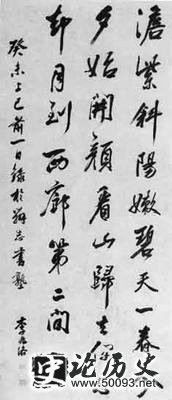 澹紫斜陽嫩碧天一春
夕始開顏看山歸去
却月到西廊第二間
癸未上巳前一日錄於輔志書塾
李兆洛
论历史
www.50093.net